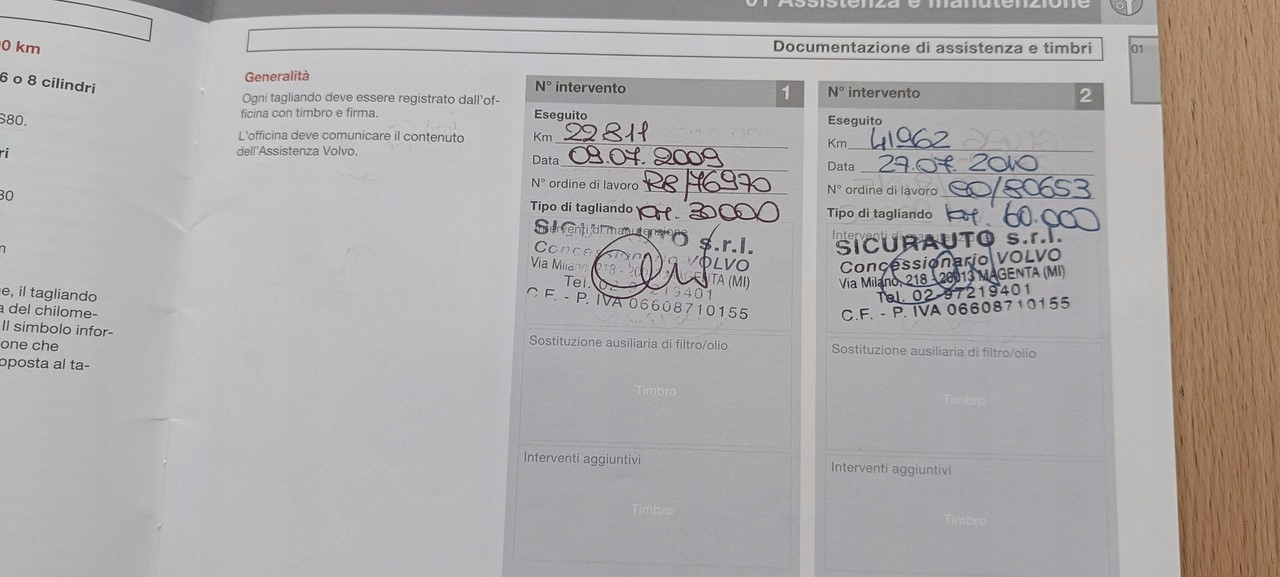 01 Assistenza e manutenzione
Documentazione di assistenza e timbri
01
0 km
6 o 8 cilindri
S80.
ri
30
n
e, il tagliando
a del chilome-
Il simbolo infor-
one che
oposta al ta-
Generalità
Ogni tagliando deve essere registrato dall'of-
ficina con timbro e firma.
L'officina deve comunicare il contenuto
dell'Assistenza Volvo.
N° intervento 1
Eseguito
Km 22811
Data 09.07.2009
N° ordine di lavoro R8/76970
Tipo di tagliando km. 30000
Interventi di manutenzione
SICURAUTO s.r.l.
Concessionario VOLVO
Via Milano, 218 - 20013 MAGENTA (MI)
Tel. 02-97219401
C.F. - P. IVA 06608710155
Sostituzione ausiliaria di filtro/olio
Timbro
Interventi aggiuntivi
Timbro
N° intervento 2
Eseguito
Km 41962
Data 27.07.2010
N° ordine di lavoro 80653
Tipo di tagliando km. 60.000
Interventi di manutenzione
SICURAUTO s.r.l.
Concessionario VOLVO
Via Milano, 218 - 20013 MAGENTA (MI)
Tel. 02-97219401
C.F. - P. IVA 06608710155
Sostituzione ausiliaria di filtro/olio
Timbro
Interventi aggiuntivi
Timbro